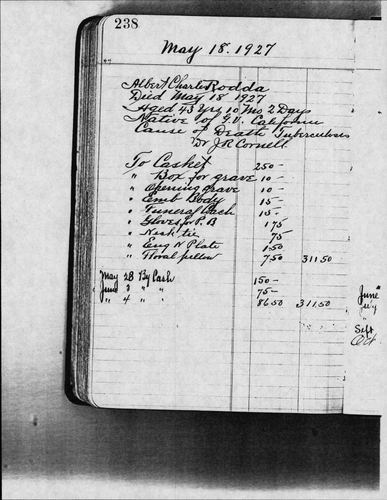 238
May 18. 1927
Albert Charls Rodda
Died May 18 1927
Aged 43 Yrs 10 Ms 2 Days
Native of G.V. California
Cause of Death Tuberculosis
Dr J R Cornell
To Casket 250 –
" Box for grave 10 –
" Opening grave 10 –
" Emb Body 15 –
" Funeral Coach 15 –
" Gloves for P. B 1 75
" Neck tie 75
" Eng N Plate 1.50
" Floral pillow 7 50 311 50
May 28 By Cash 150 –
June 3 " " 75 –
" 4 " 86 50 311.50
June
July
"
Sept
Oct